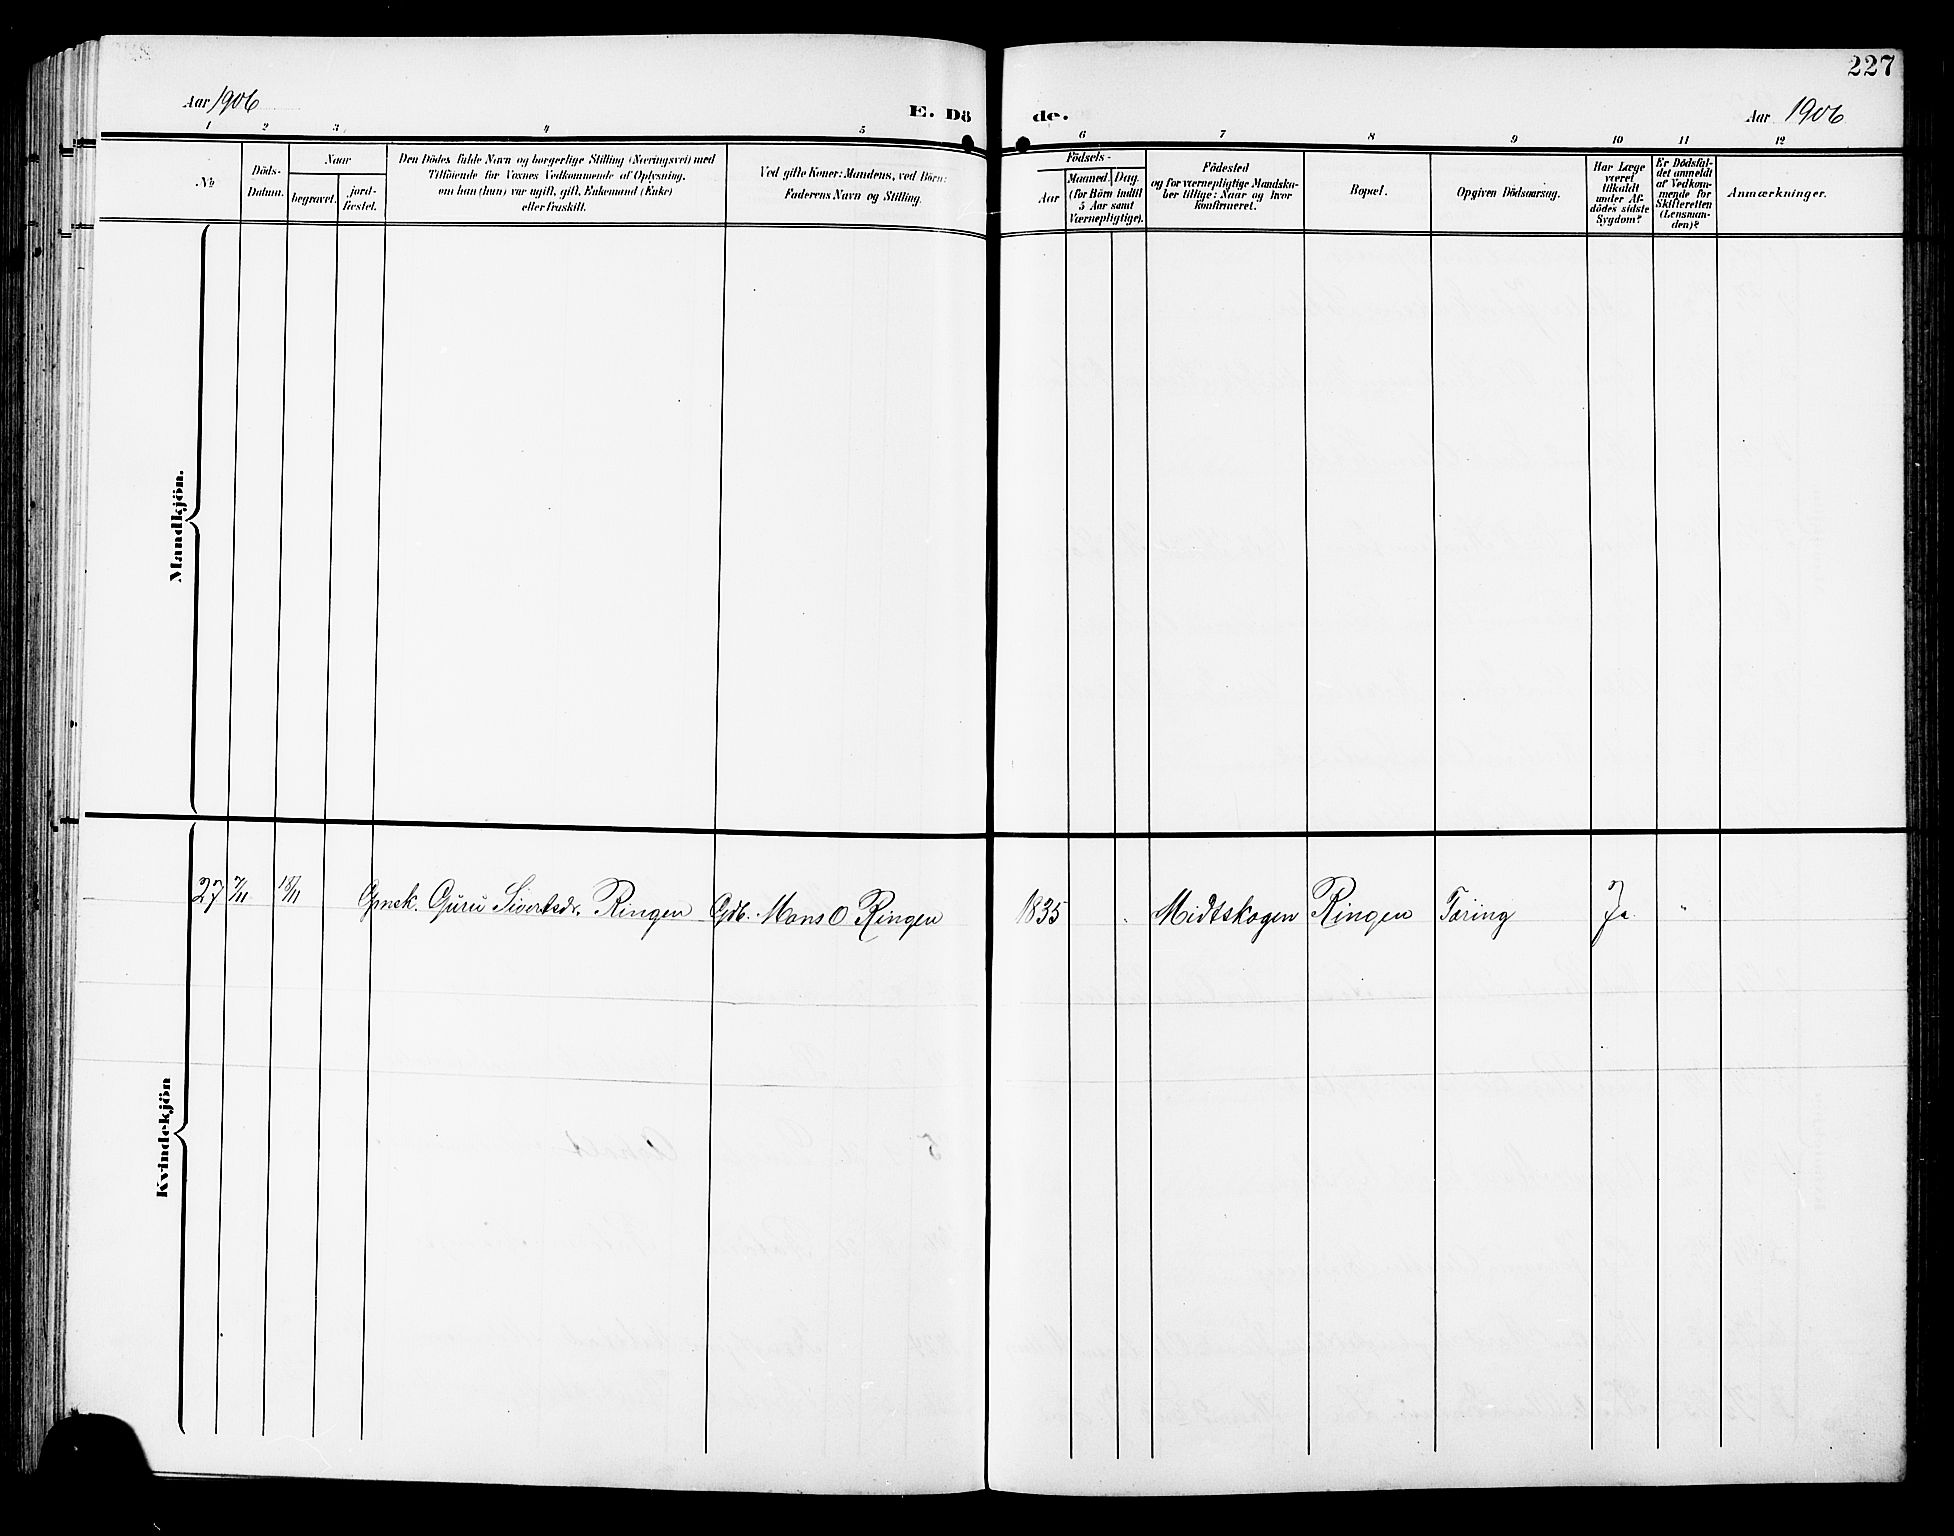 227
Aar 1906
E. Dö de.
Aar 1906
1 2 3 4 5 6 7 8 9 10 11 12
No
Döds-
Datum.
Naar
begravet.
jord-
fæstet.
Den Dödes fulde Navn og borgerlige Stilling (Næringsvei) med
Tilföiende for Voxnes Vedkommende af Oplysning,
om han (hun) var ugift, gift, Enkemand (Enke)
eller fraskilt.
Ved gifte Koner: Mandens, ved Börn:
Faderens Navn og Stilling.
Födsels-
Aar
Maaned. Dag.
(for Börn indtil
5 Aar samt
Værnepligtige).
Födested
og for værnepligtige Mandska-
ber tillige: Naar og hvor
konfirmeret.
Bopæl.
Opgiven Dödsaarsag.
Har Læge
været
tilkaldt
under Af-
dödes sidste
Sygdom?
Er Dödsfal-
det anmeldt
af Vedkom-
mende for
Skifteretten
(Lensman-
den)?
Anmærkninger.
Mandkjön.
27 7/11 18/11 Gmek. Guru Sivertsdr. Ringen Gdb. Mons O Ringen 1835 Midtskogen Ringen Tæring Ja "
Kvindekjön